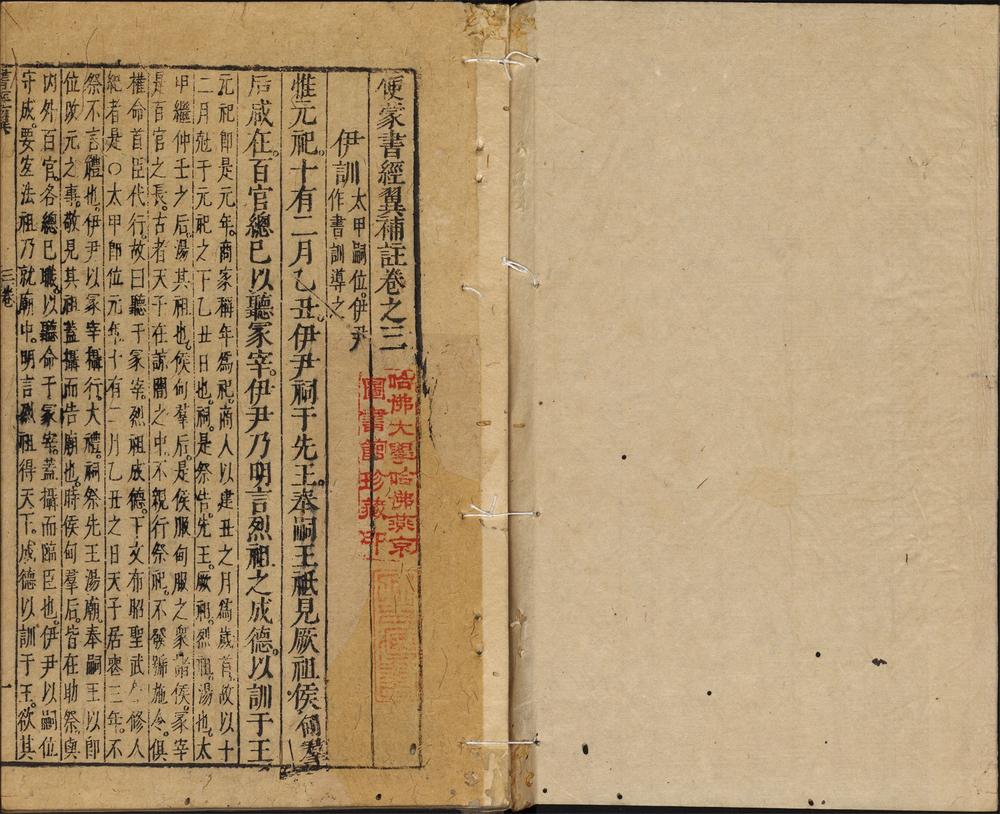 便蒙書經翼補註卷之三
伊訓
太甲嗣位。伊尹
作書訓導之。
惟元祀。十有二月乙丑。伊尹祠于先王。奉嗣王祗見厥祖。侯甸羣
后咸在。百官總己以聽冢宰。伊尹乃明言烈祖之成德。以訓于王
元祀即是元年。商家稱年爲祀。商人以建丑之月爲歲首。故以十
二月冠于元祀之下。乙丑日也。祠。是祭告先王。厥祖。烈祖。湯也。太
甲繼仲壬之后。湯其祖也。侯甸羣后。是侯服甸服之衆諸侯。冢宰
是百官之長。古者天子在諒闇之中。不親行祭祀。不發號施令。俱
權命首臣代行。故曰聽于冢宰。烈祖成德。下文布昭聖武 修人
紀者是○太甲即位元年十有二月乙丑之日天子居喪三年。不
祭不言禮也。伊尹以冢宰攝行大禮。祠祭先王湯廟。奉嗣王以即
位改元之事。敬見其祖。蓋攝而告廟也。時侯甸羣后。皆在助祭。與
內外百官。各總己職。以聽命于冢宰。蓋攝而臨臣也。伊尹以嗣位
守成。要在法祖。乃就廟中。明言烈祖得天下。成德以訓于王。欲其
三卷
一
哈佛大學哈佛燕京
圖書館珍藏印